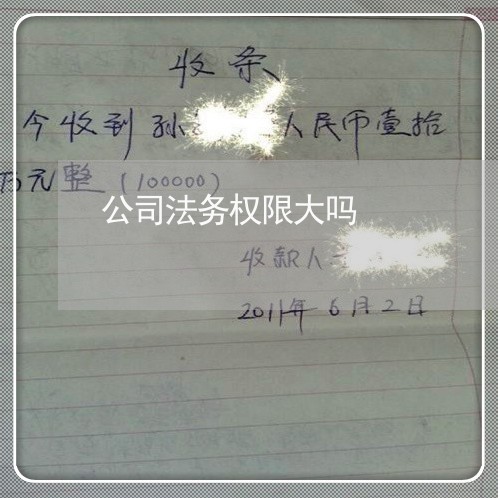 收条
今收到孙 人民币壹拾
万元整（100000）
公司法务权限大吗
收款人
2011年6月2日